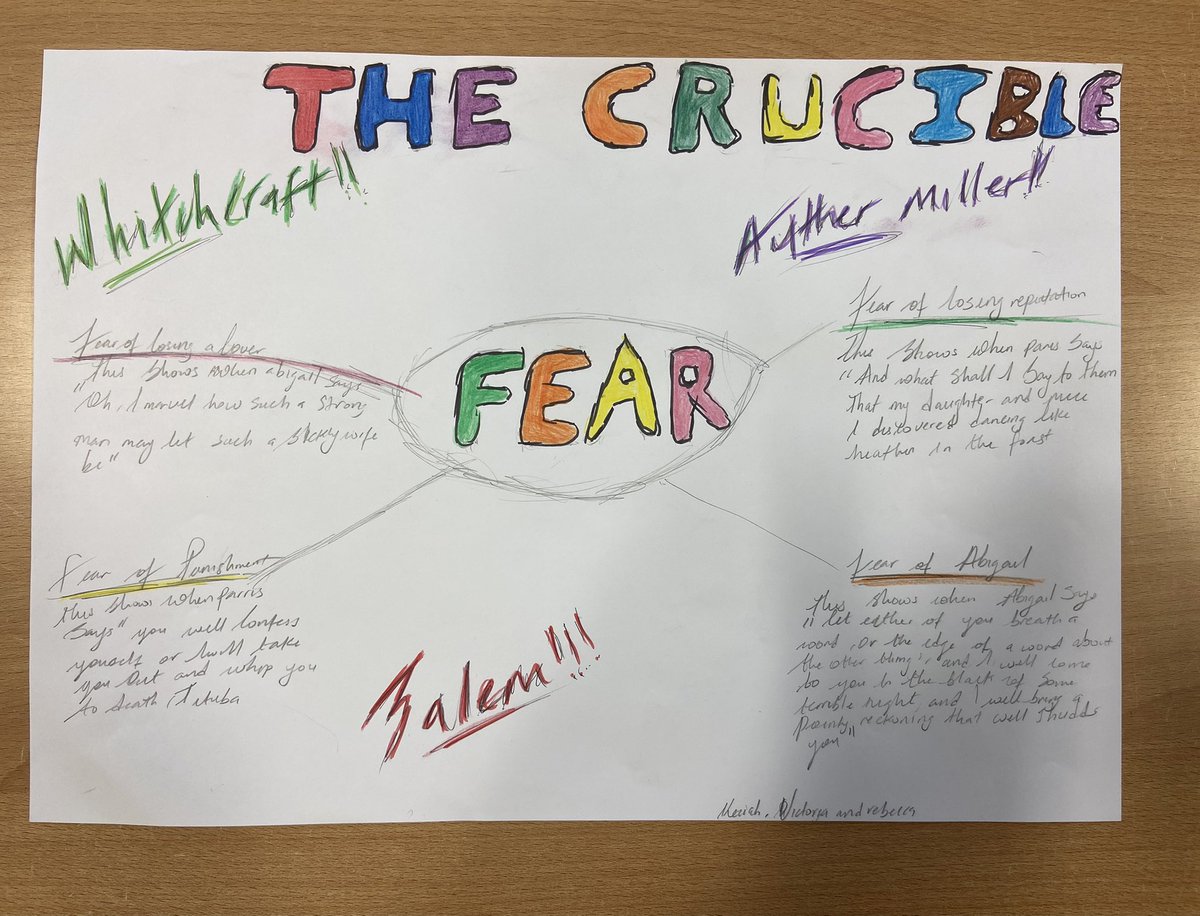 THE CRUCIBLE
Whitchcraft!!
Auther Miller!!
Fear of losing a lover
This shows when abigail says
"Oh, I marvel how such a strong
man may let such a sickly wife
be"
FEAR
Fear of losing reputation
This shows when parris says
"And what shall I say to them
That my daughter and niece
I discovered dancing like
heathen in the forest
Fear of Punishment
this shows when parris
says "you well confess
yourself or I will take
you out and whip you
to death, Tituba
Fear of Abigail
This shows when Abigail says
"let either of you breath a
word, or the edge of a word about
the other thing, and I well come
to you in the black of some
terrible night, and I well bring a
pointy reckoning that well shudds
you"
Salem!!!
Victoria and rebecca